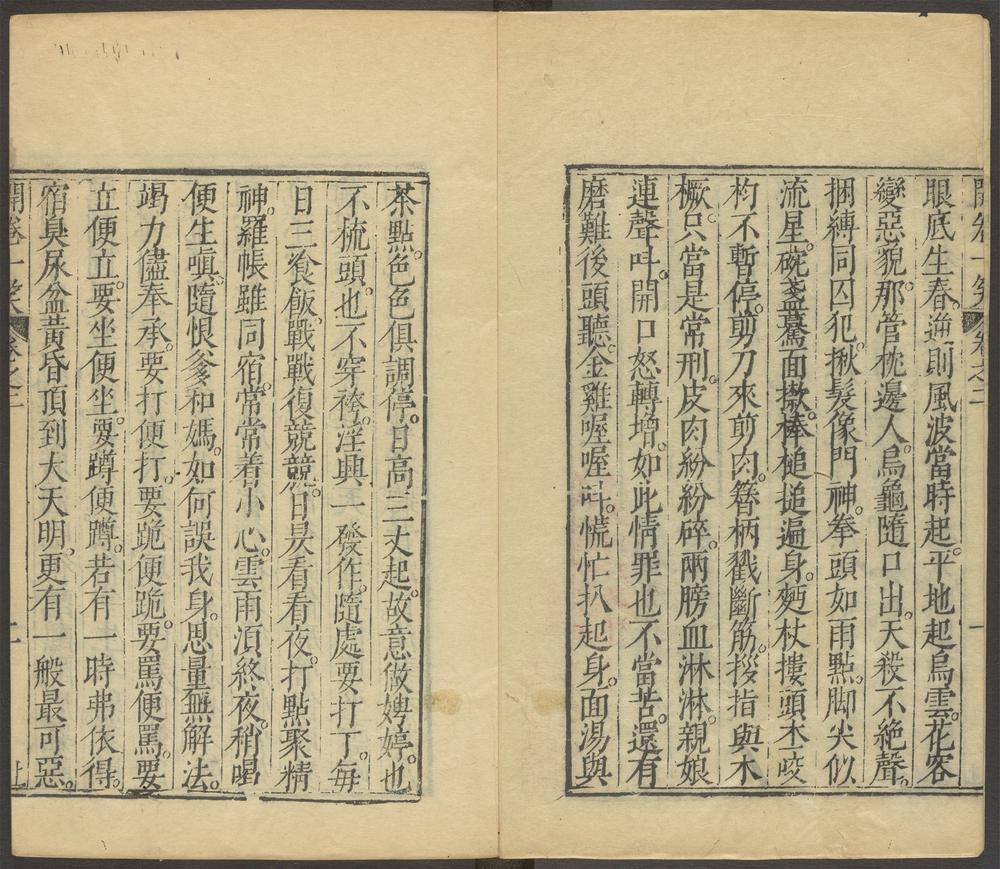 開卷一笑 卷之二 一
眼底生春。逾則風波當時起。平地起烏雲。花容
變惡貌。那管枕邊人。烏龜隨口出。天殺不絕聲。
捆縛同囚犯。楸髮像門神。拳頭如雨點。脚尖似
流星。碗盞驀面撒。棒槌搥遍身。麪杖摟頭木。咬
杓不暫停。剪刀來剪肉。簪柄戳斷筋。拶指與木
橛。只當是常刑。皮肉紛紛碎。兩膀血淋淋。親娘
連聲呌。開口怒轉增。如此情罪也不當苦。還有
磨難後頭聽。金雞喔喔呌。慌忙扒起身。面湯與
茶點。色色俱調停。日高三丈起。故意做娉婷。也
不梳頭。也不穿褲。淫興一發作。隨處要打丁。每
日三飡飯。戰戰復競競。日昃看看夜。打點聚精
神。羅帳雖同宿。常常着小心。雲雨湏終夜。稍喝
便生嗔。隨恨爹和媽。如何誤我身。思量無解法。
竭力儘奉承。要打便打。要跪便跪。要罵便罵。要
立便立。要坐便坐。要蹲便蹲。若有一時弗依得。
宿臭尿盆黃昏頂到大天明。更有一般最可惡。
開卷一笑 卷之二 二